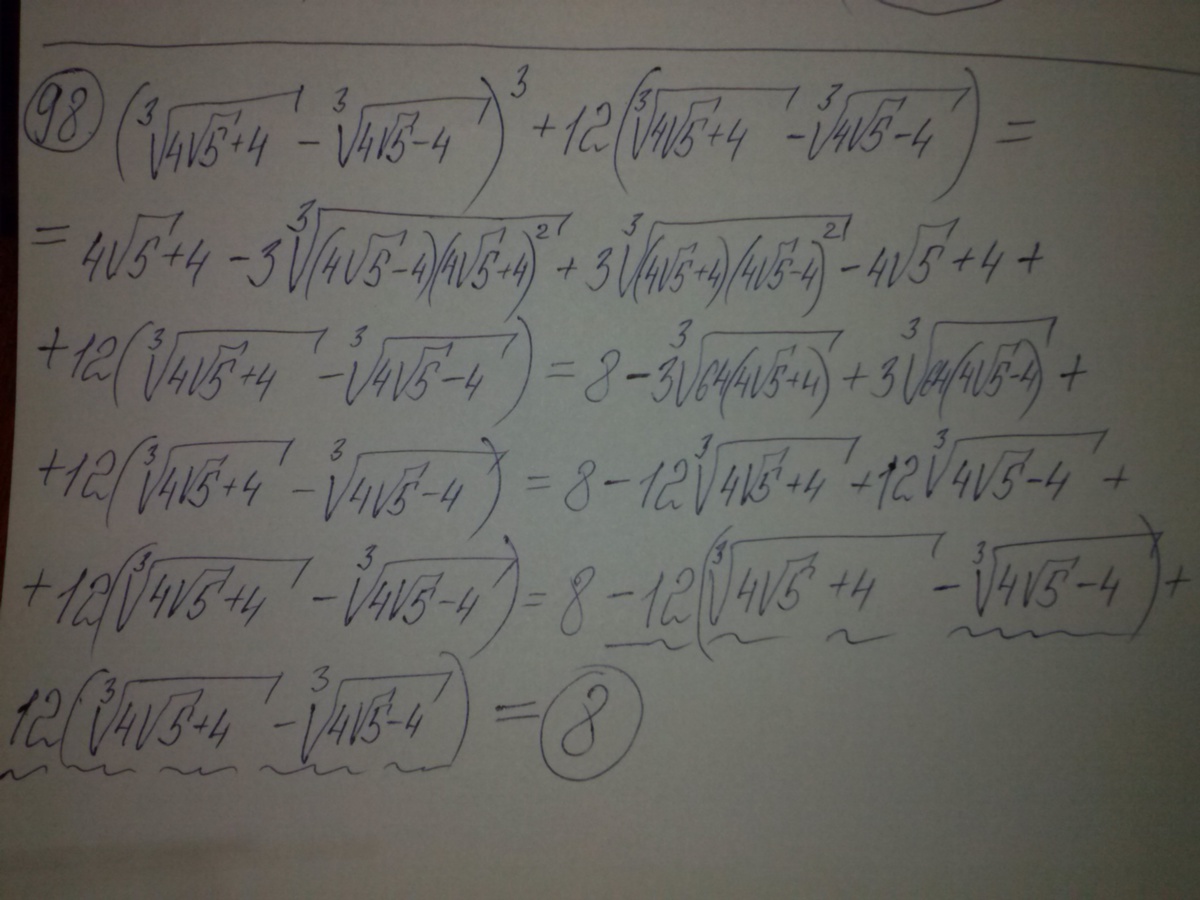 98 (∛(4√5+4) - ∛(4√5-4))³ + 12(∛(4√5+4) - ∛(4√5-4)) =
= 4√5+4 - 3∛((4√5-4)(4√5+4)²) + 3∛((4√5+4)(4√5-4)²) - 4√5+4 +
+12(∛(4√5+4) - ∛(4√5-4)) = 8 - 3∛(64(4√5+4)) + 3∛(64(4√5-4)) +
+12(∛(4√5+4) - ∛(4√5-4)) = 8 - 12∛(4√5+4) + 12∛(4√5-4) +
+12(∛(4√5+4) - ∛(4√5-4)) = 8 - 12(∛(4√5+4) - ∛(4√5-4)) +
12(∛(4√5+4) - ∛(4√5-4)) = 8